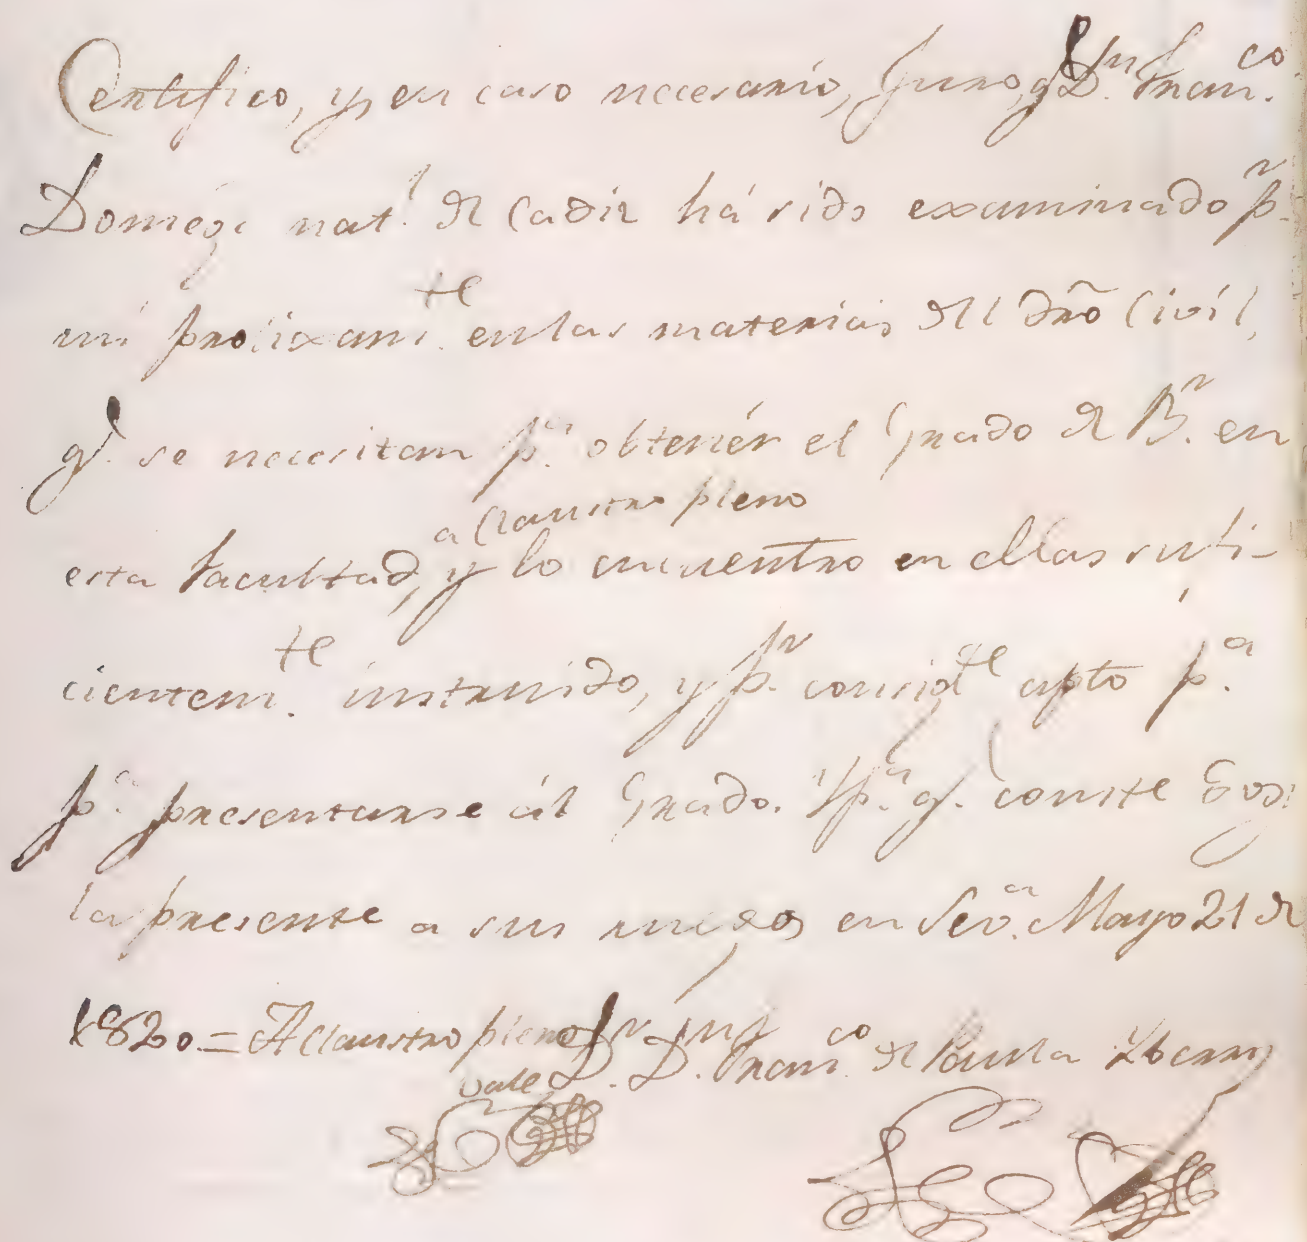 Certifico, y en caso necesario, Juro, q.e D.n Fran.co
Domeqe nat.l de Cadiz há sido examinado p.r
mi prolixam.te en las materias del dro Civil,
q.e se necesitan p.a obtenér el Grado de B.r en
a Claustro pleno
esta facultad, y lo encuentro en ellas sufi-
cientem.te instruido, y p.r consig.te apto p.a
p.a presentarse ál Grado. Y p.a q.e conste doy
la presente a sus ruegos en Sev.a Mayo 21 de
1820. = A Claustro pleno
vale D.r D.n Fran.co de Paula